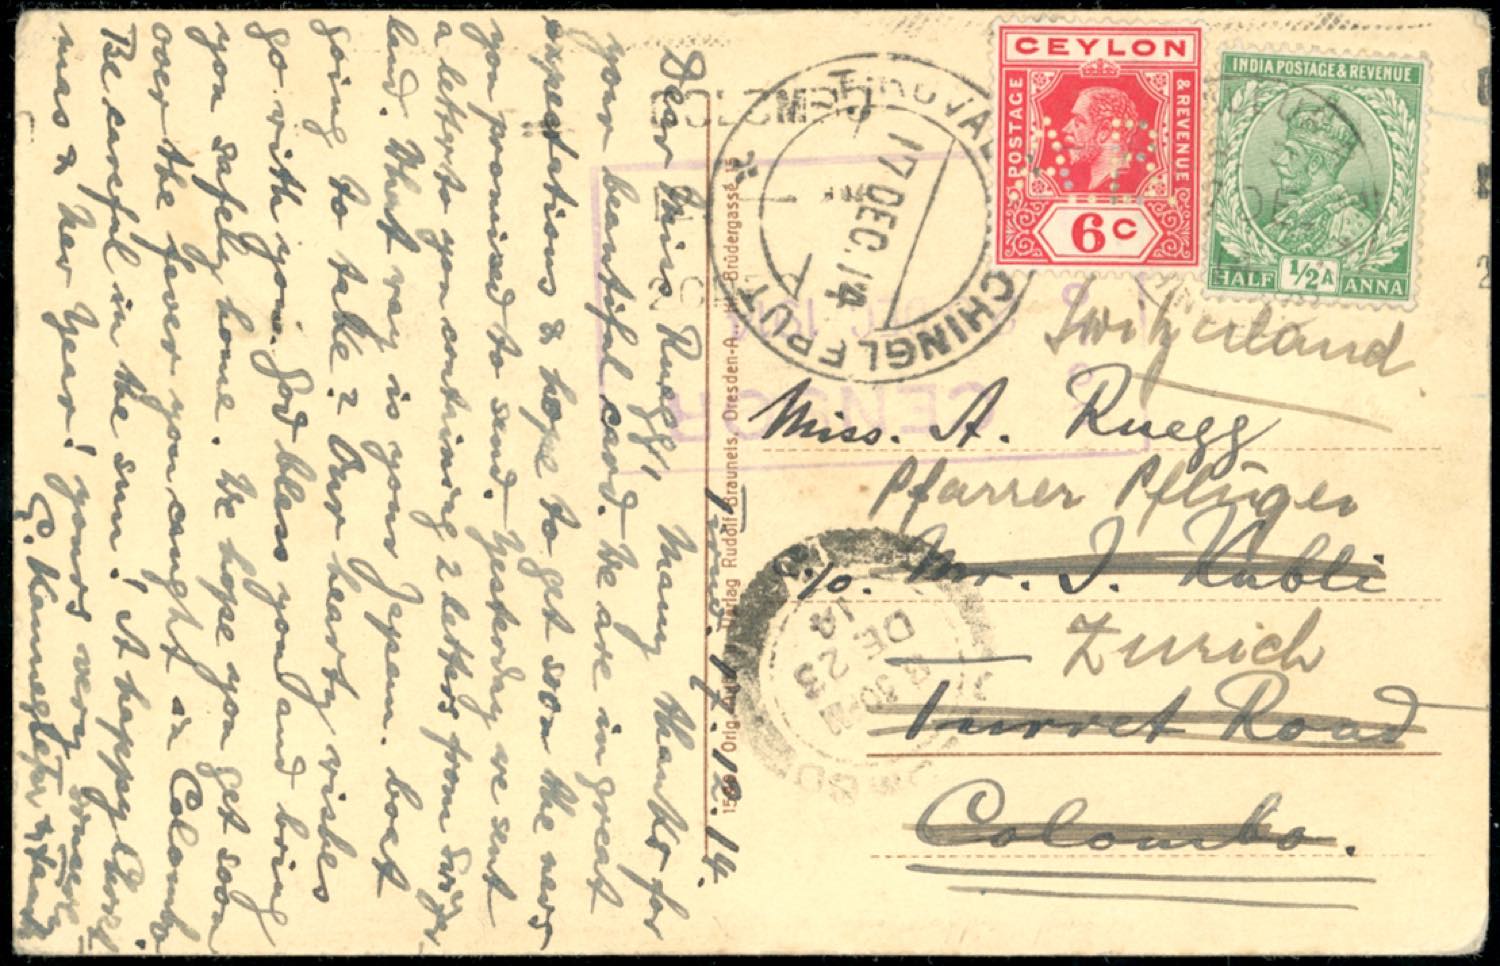 Dear Miss Ruegg! Many thanks for
your beautiful card. We are in great
expectations & hope to get soon the news
you promised to send. Yesterday we sent
a letter to you containing 2 letters from
land. What way is your Japan. boat
going to take? Our hearty wishes
go with you. God bless you and bring
you safely home. We hope you get soon
over the fever you caught in Colombo
Be careful in the sun! A happy Christ
mas & New Year! yours very sincere
17.12.14.
Orig.
Verlag Rudolf Braunels, Dresden-A. Brüdergasse
COLOMBO
CHINGLEPUT
17 DEC. 14
CENSOR
CEYLON
POSTAGE
& REVENUE
6 C
INDIA POSTAGE & REVENUE
HALF 1/2 A ANNA
Switzerland
Miss. A. Ruegg
Pfarrer Pflüger
c/o. Mr. J. Kabli
Zurich
Turret Road
Colombo.
8.30PM
DE 23
14